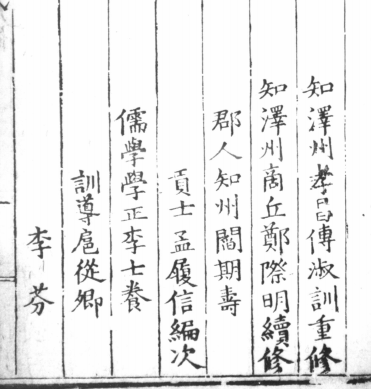 知澤州孝昌傅淑訓重修
知澤州商丘鄭際明續修
郡人知州閻期壽
貢士孟履信編次
儒學學正李士養
訓導扈從卿
李芬